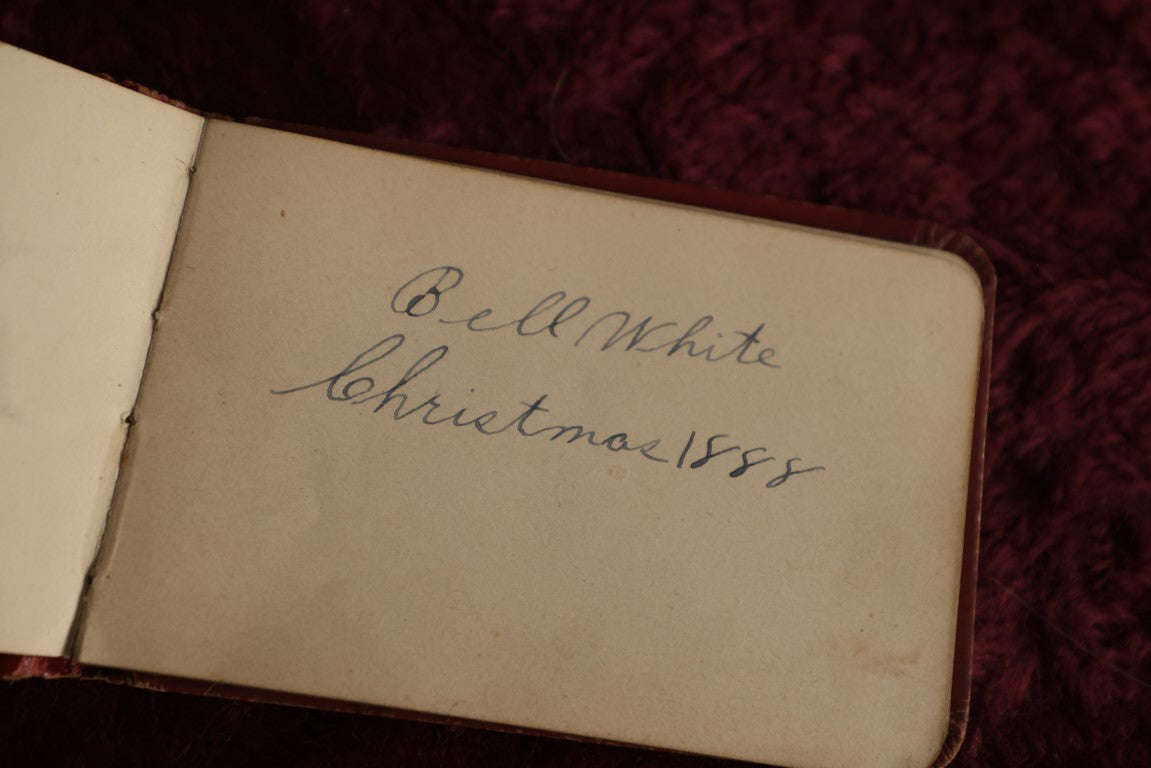 Bell White
Christmas 1888